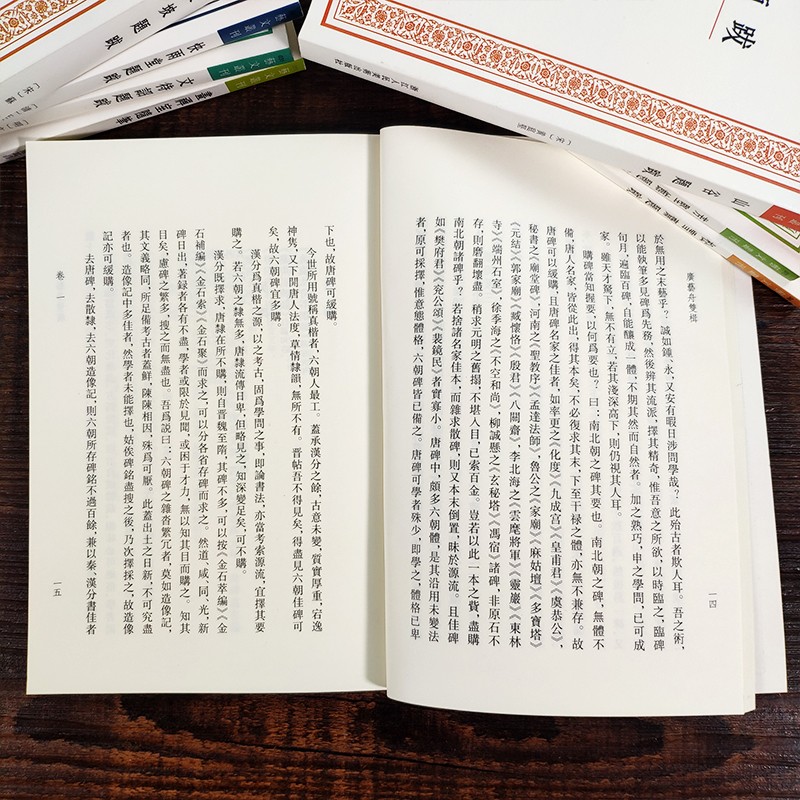 藝文叢刊
坡題跋
藝文叢刊
鐵函齋題跋
藝文叢刊
畫禪室隨筆
題跋
浙江人民美術出版社
（宋）黄庭堅
山谷題跋
廣藝舟雙楫
於無用之末藝乎？誠如鍾、永，又安有暇日涉問學哉？此殆古者欺人耳。吾之術，
以能執筆多見碑爲先務，然後辨其流派，擇其精奇，惟吾意之所欲，以時臨之，臨碑
旬月，遍臨百碑，自能釀成一體，不期其然而自然者。加之熟巧，申之學問，已可成
家。雖天才駑下，無不有立，若其淺深高下，則仍視其人耳。
購碑當知握要，以何爲要也？曰：南北朝之碑其要也。南北朝之碑，無體不
備，唐人名家，皆從此出，得其本矣，不必復求其末，下至干禄之體，亦無不兼存。故
唐碑可以緩購，且唐碑名家之佳者，如率更之《化度》《九成宫》《皇甫君》《虞恭公》，
秘書之《廟堂碑》，河南之《聖教序》《孟達法師》，魯公之《家廟》《麻姑壇》《多寶塔》
《元結》《郭家廟》《臧懷恪》《殷君》《八關齋》，李北海之《雲麾將軍》《靈巖》《東林
寺》《端州石室》，徐季海之《不空和尚》，柳誠懸之《玄秘塔》《馮宿》諸碑，非原石不
存，則磨翻壞盡。稍求元明之舊搨，不堪入目，已索百金。豈若以此一本之費，盡購
南北朝諸碑乎？若捨諸名家佳本，而雜求散碑，則又本末倒置，昧於源流。且佳碑
如《樊府君》《兖公頌》《裴鏡民》者實寡小。唐碑中，頗多六朝體，是其沿用未變法
者，原可採擇，惟意態體格，六朝碑皆已備之。唐碑可學者殊少，即學之，體格已卑
一四
下也，故唐碑可緩購。
今世所用號稱真楷者，六朝人最工。蓋承漢分之餘，古意未變，質實厚重，宕逸
神雋，又下開唐人法度，草情隸韻，無所不有。晋帖吾不得見矣，得盡見六朝佳碑可
矣，故六朝碑宜多購。
漢分爲真楷之源，以之考古，固爲學問之事，即論書法，亦當考索源流，宜擇其要
購之。若六朝之隸無多，唐隸流傳日卑，但略見之，知深變足矣，可不購。
漢分既擇求，唐隸在所不購，則自晋魏至隋，其碑不多，可以按《金石萃編》《金
石補編》《金石索》《金石聚》而求之，可以分各省存碑而求之。然道、咸、同、光，新
碑日出，著録者各有不盡，學者或限於見聞，或困于才力，無以知其目而購之。知其
目矣，慮碑之繁多，搜之而無盡也。吾爲説曰：六朝碑之雜沓繁冗者，莫如造像記，
其文義略同，所足備考古者蓋鮮，陳陳相因，殊爲可厭。此蓋出土之日新，不可究盡
者也。造像記中多佳者，然學者未能擇也。姑俟碑銘盡搜之後，乃次擇採之，故造像
記亦可緩購。
去唐碑，去散隸，去六朝造像記，則六朝所存碑銘不過百餘，兼以秦、漢分書佳者
卷一
一五